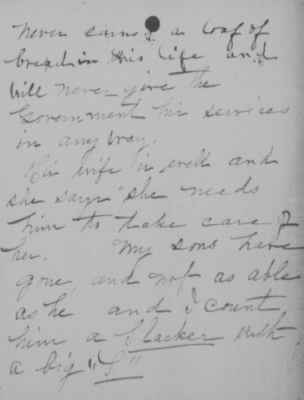 never earned a loaf of
bread in his life and
will never give the
Government his services
in any way.
His wife is well and
she says she needs
him to take care of
her. My sons have
gone, and not as able
as he and I count
him a Slacker with
a big "S"